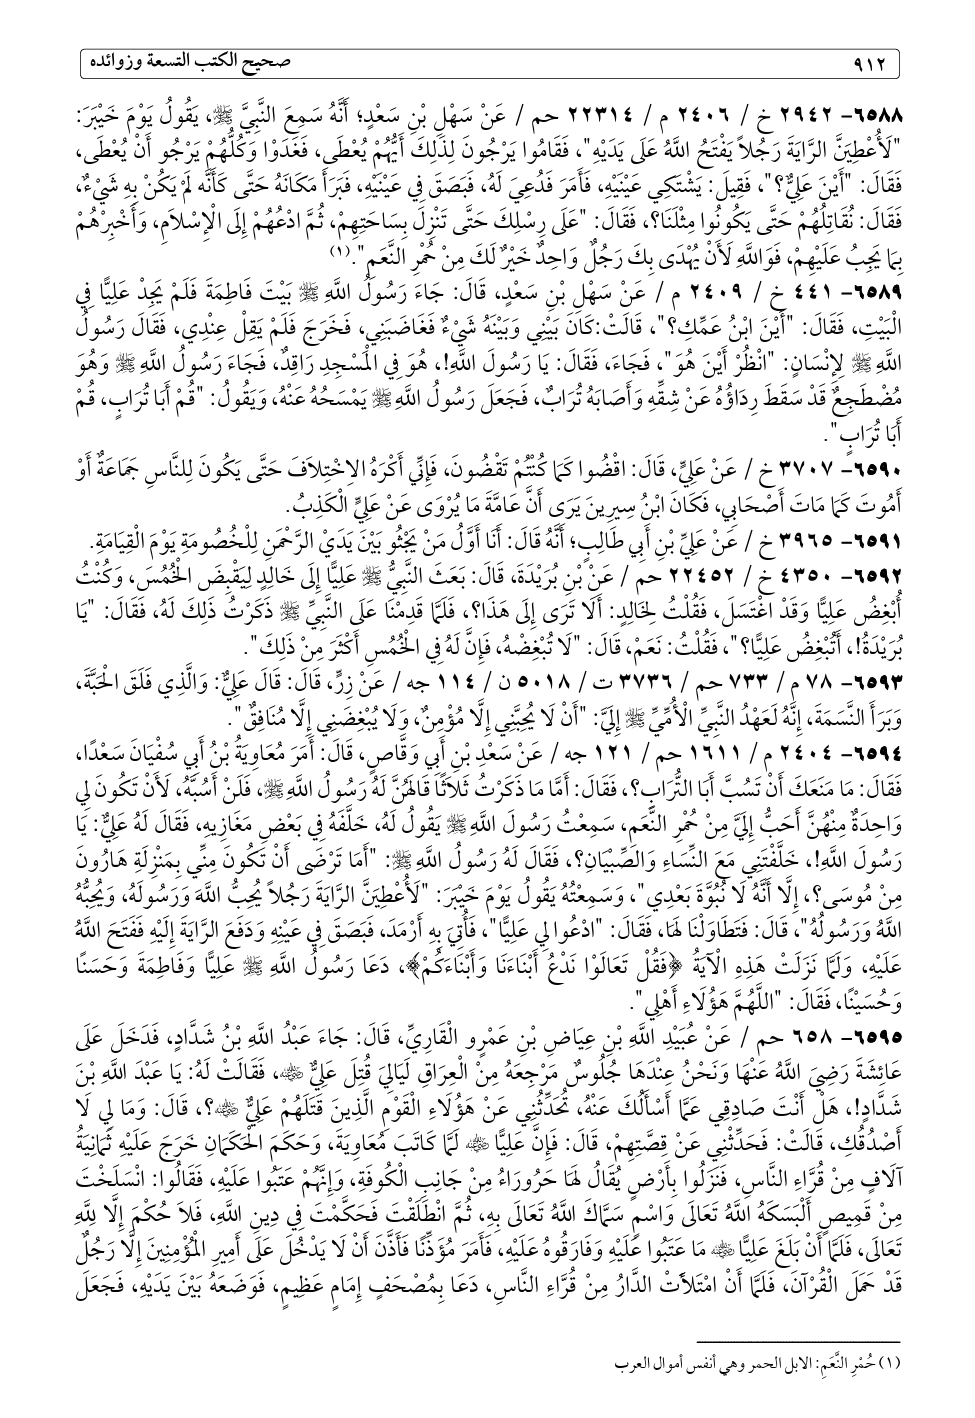 ٩١٢ صحيح الكتب التسعة وزوائده
٦٥٨٨- ٢٩٤٢ خ / ٢٤٠٦ م / ٢٢٣١٤ حم / عَنْ سَهْلِ بْنِ سَعْدٍ؛ أَنَّهُ سَمِعَ النَّبِيَّ ﷺ، يَقُولُ يَوْمَ خَيْبَرَ:
"لَأُعْطِيَنَّ الرَّايَةَ رَجُلاً يَفْتَحُ اللَّهُ عَلَى يَدَيْهِ"، فَقَامُوا يَرْجُونَ لِذَلِكَ أَيُّهُمْ يُعْطَى، فَغَدَوْا وَكُلُّهُمْ يَرْجُو أَنْ يُعْطَى،
فَقَالَ: "أَيْنَ عَلِيٌّ؟"، فَقِيلَ: يَشْتَكِي عَيْنَيْهِ، فَأَمَرَ فَدُعِيَ لَهُ، فَبَصَقَ فِي عَيْنَيْهِ، فَبَرَأَ مَكَانَهُ حَتَّى كَأَنَّه لَمْ يَكُنْ بِهِ شَيْءٌ،
فَقَالَ: نُقَاتِلُهُمْ حَتَّى يَكُونُوا مِثْلَنَا؟، فَقَالَ: "عَلَى رِسْلِكَ حَتَّى تَنْزِلَ بِسَاحَتِهِمْ، ثُمَّ ادْعُهُمْ إِلَى الْإِسْلَامِ، وَأَخْبِرْهُمْ
بِمَا يَجِبُ عَلَيْهِمْ، فَوَاللَّهِ لَأَنْ يُهْدَى بِكَ رَجُلٌ وَاحِدٌ خَيْرٌ لَكَ مِنْ حُمْرِ النَّعَمِ".(١)
٦٥٨٩- ٤٤١ خ / ٢٤٠٩ م / عَنْ سَهْلِ بْنِ سَعْدٍ، قَالَ: جَاءَ رَسُولُ اللَّهِ ﷺ بَيْتَ فَاطِمَةَ فَلَمْ يَجِدْ عَلِيًّا فِي
الْبَيْتِ، فَقَالَ: "أَيْنَ ابْنُ عَمِّكِ؟"، قَالَتْ:كَانَ بَيْنِي وَبَيْنَهُ شَيْءٌ فَغَاضَبَنِي، فَخَرَجَ فَلَمْ يَقِلْ عِنْدِي، فَقَالَ رَسُولُ
اللَّهِ ﷺ لِإِنْسَانٍ: "انْظُرْ أَيْنَ هُوَ"، فَجَاءَ، فَقَالَ: يَا رَسُولَ اللَّهِ!، هُوَ فِي الْمَسْجِدِ رَاقِدٌ، فَجَاءَ رَسُولُ اللَّهِ ﷺ وَهُوَ
مُضْطَجِعٌ قَدْ سَقَطَ رِدَاؤُهُ عَنْ شِقِّهِ وَأَصَابَهُ تُرَابٌ، فَجَعَلَ رَسُولُ اللَّهِ ﷺ يَمْسَحُهُ عَنْهُ، وَيَقُولُ: "قُمْ أَبَا تُرَابٍ، قُمْ
أَبَا تُرَابٍ".
٦٥٩٠- ٣٧٠٧ خ / عَنْ عَلِيٍّ، قَالَ: اقْضُوا كَمَا كُنْتُمْ تَقْضُونَ، فَإِنِّي أَكْرَهُ الِاخْتِلَافَ حَتَّى يَكُونَ لِلنَّاسِ جَمَاعَةٌ أَوْ
أَمُوتَ كَمَا مَاتَ أَصْحَابِي، فَكَانَ ابْنُ سِيرِينَ يَرَى أَنَّ عَامَّةَ مَا يُرْوَى عَنْ عَلِيٍّ الْكَذِبُ.
٦٥٩١- ٣٩٦٥ خ / عَنْ عَلِيِّ بْنِ أَبِي طَالِبٍ؛ أَنَّهُ قَالَ: أَنَا أَوَّلُ مَنْ يَجْثُو بَيْنَ يَدَيْ الرَّحْمَنِ لِلْخُصُومَةِ يَوْمَ الْقِيَامَةِ.
٦٥٩٢- ٤٣٥٠ خ / ٢٢٤٥٢ حم / عَنْ بْنِ بُرَيْدَةَ، قَالَ: بَعَثَ النَّبِيُّ ﷺ عَلِيًّا إِلَى خَالِدٍ لِيَقْبِضَ الْخُمُسَ، وَكُنْتُ
أُبْغِضُ عَلِيًّا وَقَدْ اغْتَسَلَ، فَقُلْتُ لِخَالِدٍ: أَلَا تَرَى إِلَى هَذَا؟، فَلَمَّا قَدِمْنَا عَلَى النَّبِيِّ ﷺ ذَكَرْتُ ذَلِكَ لَهُ، فَقَالَ: "يَا
بُرَيْدَةُ!، أَتُبْغِضُ عَلِيًّا؟"، فَقُلْتُ: نَعَمْ، قَالَ: "لَا تُبْغِضْهُ، فَإِنَّ لَهُ فِي الْخُمُسِ أَكْثَرَ مِنْ ذَلِكَ".
٦٥٩٣- ٧٨ م / ٧٣٣ حم / ٣٧٣٦ ت / ٥٠١٨ ن / ١١٤ جه / عَنْ زِرٍّ، قَالَ: قَالَ عَلِيٌّ: وَالَّذِي فَلَقَ الْحَبَّةَ،
وَبَرَأَ النَّسَمَةَ، إِنَّهُ لَعَهْدُ النَّبِيِّ الْأُمِّيِّ ﷺ إِلَيَّ: "أَنْ لَا يُحِبَّنِي إِلَّا مُؤْمِنٌ، وَلَا يُبْغِضَنِي إِلَّا مُنَافِقٌ".
٦٥٩٤- ٢٤٠٤ م / ١٦١١ حم / ١٢١ جه / عَنْ سَعْدِ بْنِ أَبِي وَقَّاصٍ، قَالَ: أَمَرَ مُعَاوِيَةُ بْنُ أَبِي سُفْيَانَ سَعْدًا،
فَقَالَ: مَا مَنَعَكَ أَنْ تَسُبَّ أَبَا التُّرَابِ؟، فَقَالَ: أَمَّا مَا ذَكَرْتُ ثَلَاثًا قَالَهُنَّ لَهُ رَسُولُ اللَّهِ ﷺ، فَلَنْ أَسُبَّهُ، لَأَنْ تَكُونَ لِي
وَاحِدَةٌ مِنْهُنَّ أَحَبُّ إِلَيَّ مِنْ حُمْرِ النَّعَمِ، سَمِعْتُ رَسُولَ اللَّهِ ﷺ يَقُولُ لَهُ، خَلَّفَهُ فِي بَعْضِ مَغَازِيهِ، فَقَالَ لَهُ عَلِيٌّ: يَا
رَسُولَ اللَّهِ!، خَلَّفْتَنِي مَعَ النِّسَاءِ وَالصِّبْيَانِ؟، فَقَالَ لَهُ رَسُولُ اللَّهِ ﷺ: "أَمَا تَرْضَى أَنْ تَكُونَ مِنِّي بِمَنْزِلَةِ هَارُونَ
مِنْ مُوسَى؟، إِلَّا أَنَّهُ لَا نُبُوَّةَ بَعْدِي"، وَسَمِعْتُهُ يَقُولُ يَوْمَ خَيْبَرَ: "لَأُعْطِيَنَّ الرَّايَةَ رَجُلاً يُحِبُّ اللَّهَ وَرَسُولَهُ، وَيُحِبُّهُ
اللَّهُ وَرَسُولُهُ"، قَالَ: فَتَطَاوَلْنَا لَهَا، فَقَالَ: "ادْعُوا لِي عَلِيًّا"، فَأُتِيَ بِهِ أَرْمَدَ، فَبَصَقَ فِي عَيْنِهِ وَدَفَعَ الرَّايَةَ إِلَيْهِ فَفَتَحَ اللَّهُ
عَلَيْهِ، وَلَمَّا نَزَلَتْ هَذِهِ الْآيَةُ ﴿فَقُلْ تَعَالَوْا نَدْعُ أَبْنَاءَنَا وَأَبْنَاءَكُمْ﴾، دَعَا رَسُولُ اللَّهِ ﷺ عَلِيًّا وَفَاطِمَةَ وَحَسَنًا
وَحُسَيْنًا، فَقَالَ: "اللَّهُمَّ هَؤُلَاءِ أَهْلِي".
٦٥٩٥- ٦٥٨ حم / عَنْ عُبَيْدِ اللَّهِ بْنِ عِيَاضِ بْنِ عَمْرٍو الْقَارِيِّ، قَالَ: جَاءَ عَبْدُ اللَّهِ بْنُ شَدَّادٍ، فَدَخَلَ عَلَى
عَائِشَةَ رَضِيَ اللَّهُ عَنْهَا وَنَحْنُ عِنْدَهَا جُلُوسٌ مَرْجِعَهُ مِنْ الْعِرَاقِ لَيَالِيَ قُتِلَ عَلِيٌّ ﵁، فَقَالَتْ لَهُ: يَا عَبْدَ اللَّهِ بْنَ
شَدَّادٍ!، هَلْ أَنْتَ صَادِقِي عَمَّا أَسْأَلُكَ عَنْهُ، تُحَدِّثُنِي عَنْ هَؤُلَاءِ الْقَوْمِ الَّذِينَ قَتَلَهُمْ عَلِيٌّ ﵁؟، قَالَ: وَمَا لِي لَا
أَصْدُقُكِ، قَالَتْ: فَحَدِّثْنِي عَنْ قِصَّتِهِمْ، قَالَ: فَإِنَّ عَلِيًّا ﵁ لَمَّا كَاتَبَ مُعَاوِيَةَ، وَحَكَمَ الْحَكَمَانِ خَرَجَ عَلَيْهِ ثَمَانِيَةُ
آلَافٍ مِنْ قُرَّاءِ النَّاسِ، فَنَزَلُوا بِأَرْضٍ يُقَالُ لَهَا حَرُورَاءُ مِنْ جَانِبِ الْكُوفَةِ، وَإِنَّهُمْ عَتَبُوا عَلَيْهِ، فَقَالُوا: انْسَلَخْتَ
مِنْ قَمِيصٍ أَلْبَسَكَهُ اللَّهُ تَعَالَى وَاسْمٍ سَمَّاكَ اللَّهُ تَعَالَى بِهِ، ثُمَّ انْطَلَقْتَ فَحَكَّمْتَ فِي دِينِ اللَّهِ، فَلَا حُكْمَ إِلَّا لِلَّهِ
تَعَالَى، فَلَمَّا أَنْ بَلَغَ عَلِيًّا ﵁ مَا عَتَبُوا عَلَيْهِ وَفَارَقُوهُ عَلَيْهِ، فَأَمَرَ مُؤَذِّنًا فَأَذَّنَ أَنْ لَا يَدْخُلَ عَلَى أَمِيرِ الْمُؤْمِنِينَ إِلَّا رَجُلٌ
قَدْ حَمَلَ الْقُرْآنَ، فَلَمَّا أَنْ امْتَلَأَتْ الدَّارُ مِنْ قُرَّاءِ النَّاسِ، دَعَا بِمُصْحَفٍ إِمَامٍ عَظِيمٍ، فَوَضَعَهُ بَيْنَ يَدَيْهِ، فَجَعَلَ
(١) حُمْرِ النَّعَمِ: الابل الحمر وهي أنفس أموال العرب